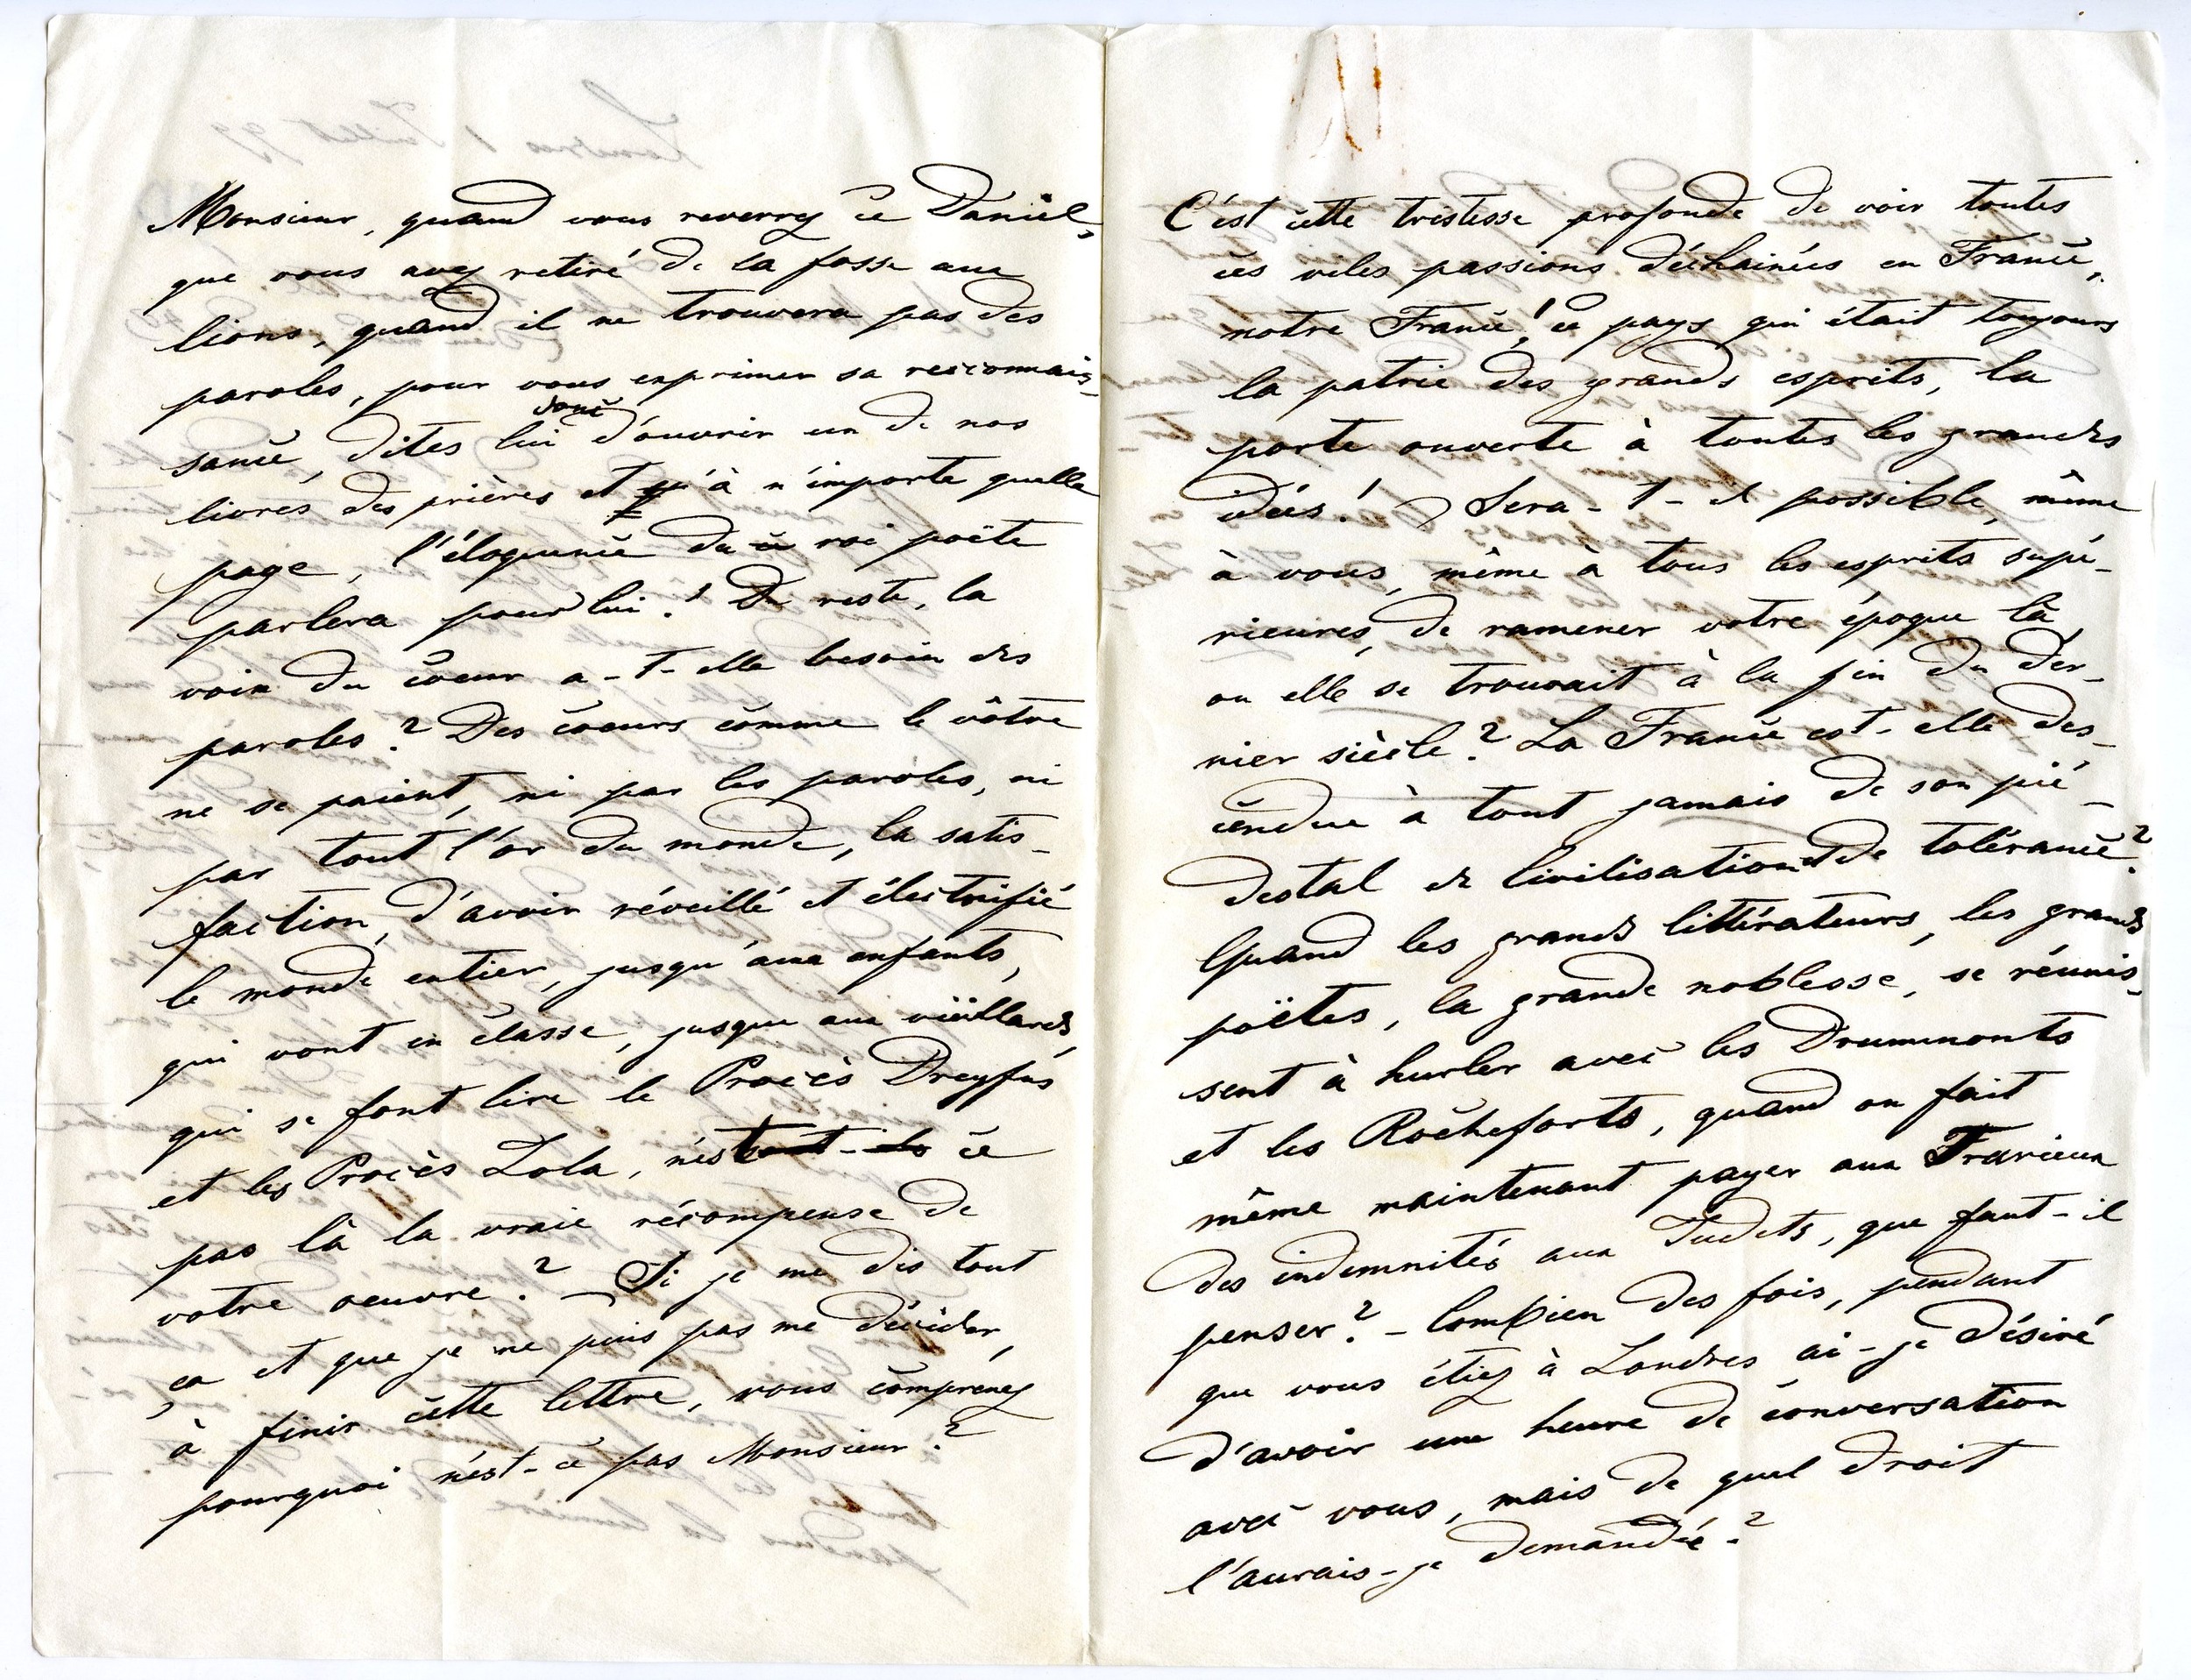 Monsieur, quand vous reverrez ce Daniel,
que vous avez retiré de la fosse aux
lions, quand il ne trouvera pas des
paroles, pour vous exprimer sa reconnais-
sance, dites lui donc d'ouvrir un de nos
livres des prières et qu'à n'importe quelle
page, l'éloquence du roi poëte
parlera pour lui! Du reste, la
voix du coeur a-t-elle besoin des
paroles? Des coeurs comme le vôtre
ne se paient, ni par les paroles, ni
par tout l'or du monde, la satis-
faction, d'avoir réveillé et électrifié
le monde entier, jusqu'aux enfants,
qui vont en classe, jusque aux vieillards,
qui se font lire le Procès Dreyfus
et les Procès Zola, n'est ce
pas là la vraie récompense de
votre oeuvre? - Si je me dis tout
ça et que je ne puis pas me décider,
à finir cette lettre, vous comprenez
pourquoi n'est-ce pas Monsieur?
C'est cette tristesse profonde de voir toutes
ces viles passions déchainées en France,
notre France! ce pays qui était toujours
la patrie des grands esprits, la
porte ouverte à toutes les grandes
idées! Sera-t-il possible, même
à vous, même à tous les esprits supé-
rieures, de ramener votre époque là,
ou elle se trouvait à la fin du der-
nier siècle? La France est-elle des-
cendue à tout jamais de son pié-
destal de Civilisation et de tolérance?
Quand les grands littérateurs, les grands
poëtes, la grande noblesse, se réunis-
sent à hurler avec les Drummonts
et les Rocheforts, quand on fait
même maintenant payer aux Frarieux
des indemnités aux Judets, que faut-il
penser? - Combien des fois, pendant
que vous étiez à Londres ai-je désiré
d'avoir une heure de conversation
avec vous, mais de quel droit
l'aurais-je demandée?